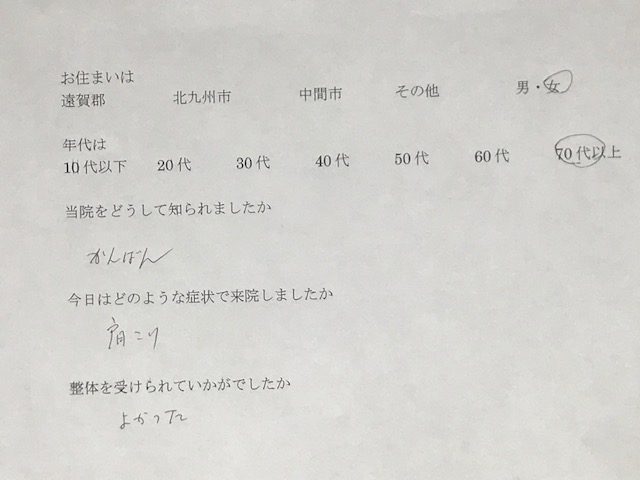 お住まいは
遠賀郡 北九州市 中間市 その他 男・女
年代は
10代以下 20代 30代 40代 50代 60代 70代以上
当院をどうして知られましたか
かんばん
今日はどのような症状で来院しましたか
肩こり
整体を受けられていかがでしたか
よかった